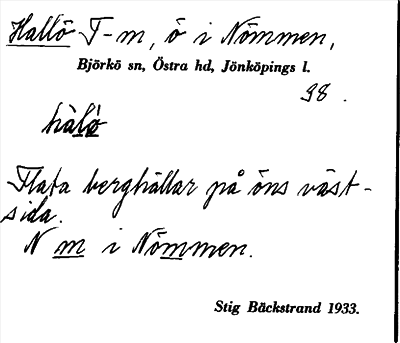 Hallö T-m, ö i Nömmen,
Björkö sn, Östra hd, Jönköpings l.
98.
hàlø̀
Flata berghällar på öns väst-
sida.
N m i Nömmen.
Stig Bäckstrand 1933.